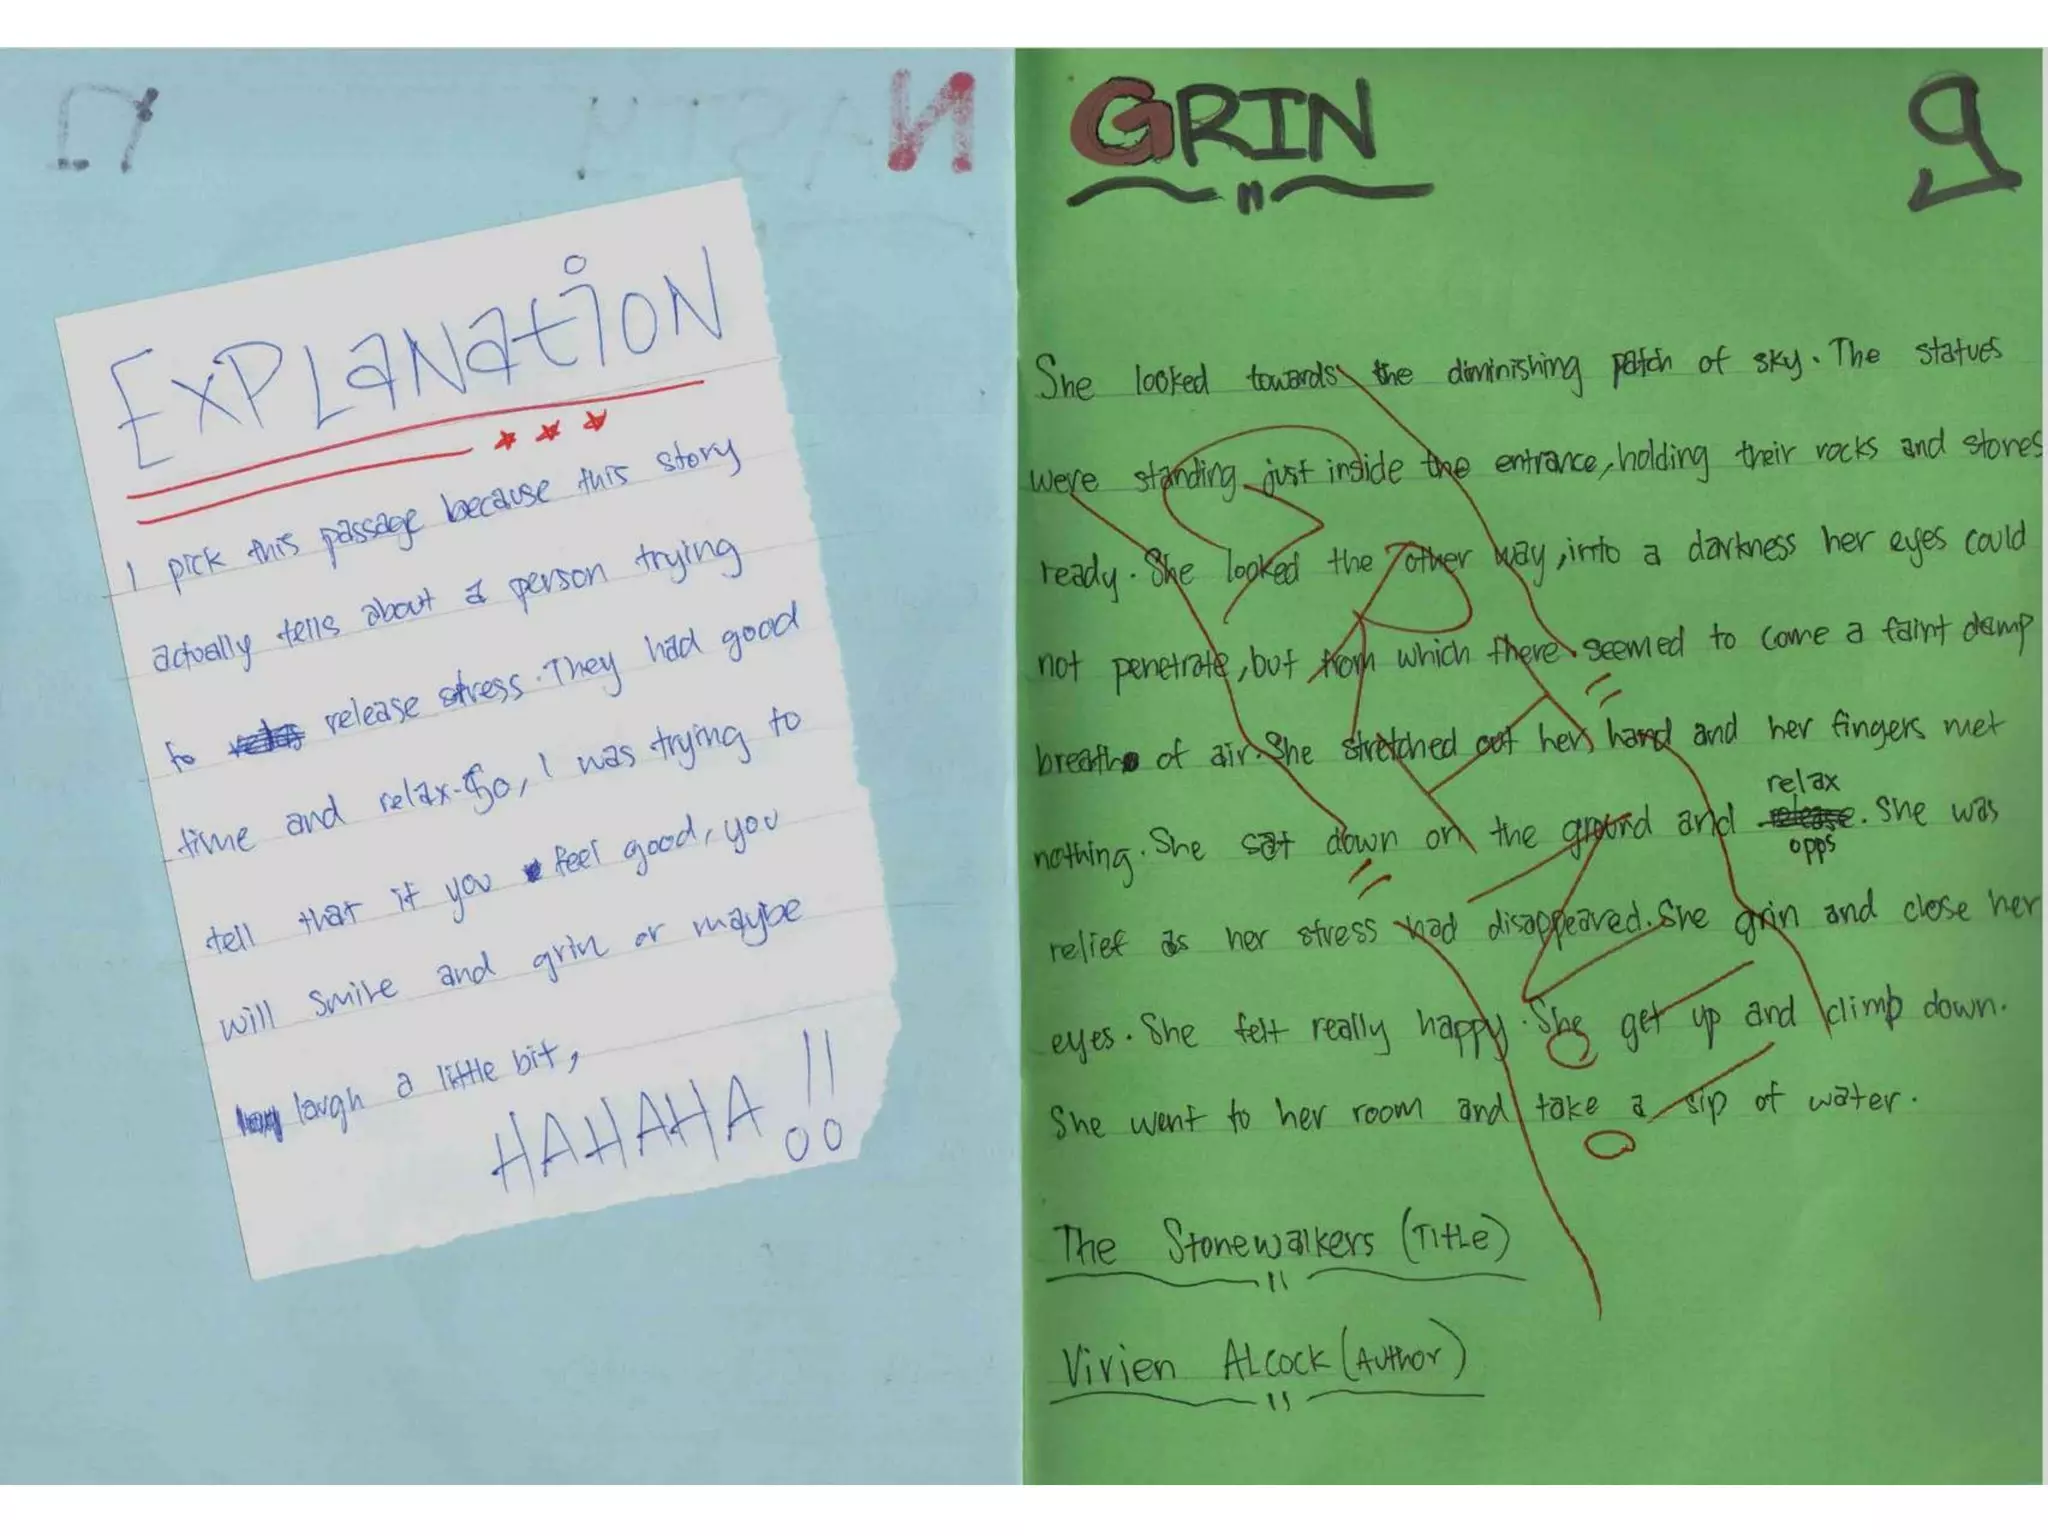 EXPLANATION
I pick this passage because this story
actually tells about a person trying
to release stress. They had good
time and relax. So, I was trying to
tell that if you feel good, you
will smile and grin or maybe
laugh a little bit,
HAHAHA!!
GRIN
g
She looked towards the diminishing patch of sky. The statues
were standing just inside the entrance, holding their rocks and stones
ready. She looked the other way, into a darkness her eyes could
not penetrate, but from which there seemed to come a faint damp
breath of air. She stretched out her hand and her fingers met
relax
nothing. She sat down on the ground and release. She was
opps
relief as her stress had disappeared. She grin and close her
eyes. She felt really happy. She get up and climb down.
She went to her room and take a sip of water.
The Stonewalkers (TITLE)
Vivien ALCOCK (AUTHOR)